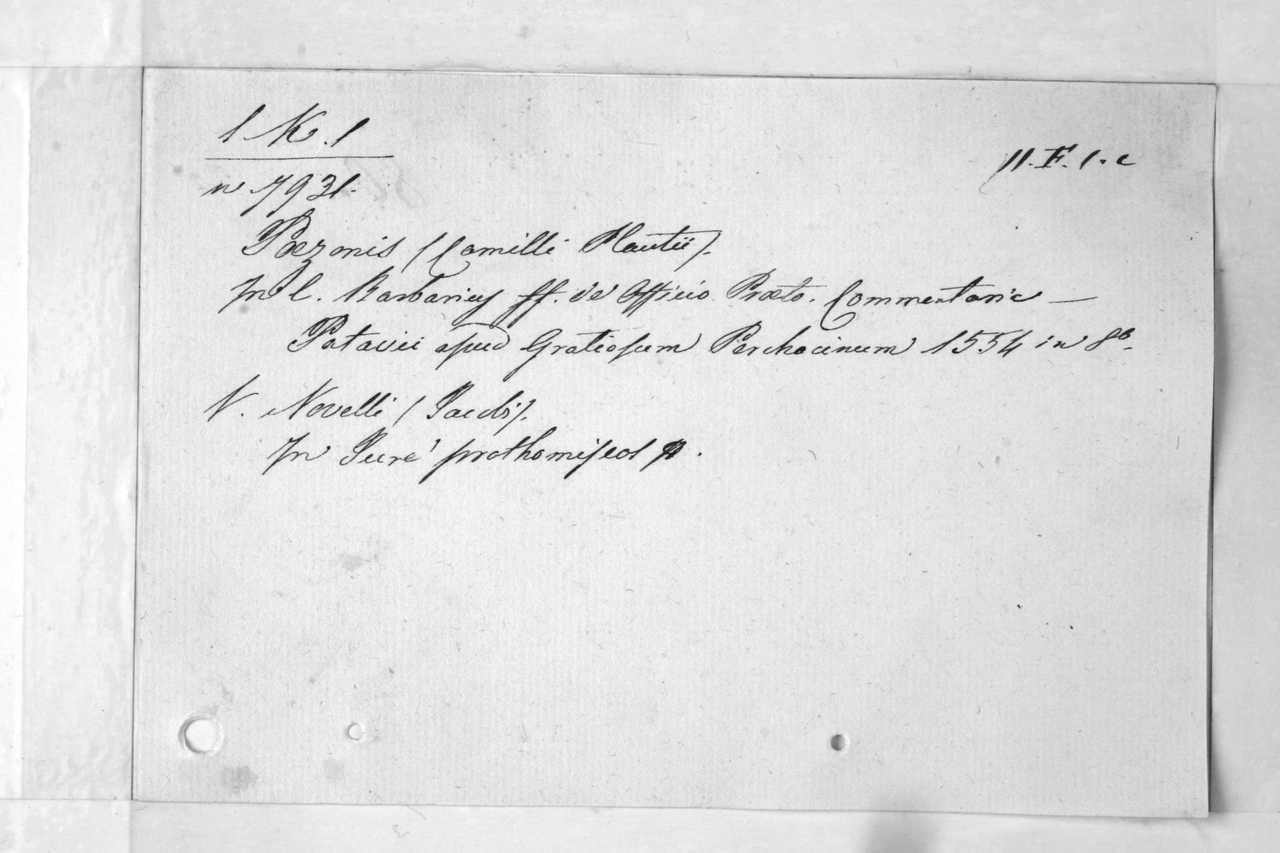 1 K. 1
11. F. 1. c
n 7931.
Pezonis (Camilli Plautii).
In l. Barbarius ff. de Officio Præto. Commentaria —
Patavii apud Gratiosum Perchacinum 1554 in 8º.
V. Novelli (Jacobi).
In Jure prothomiseos